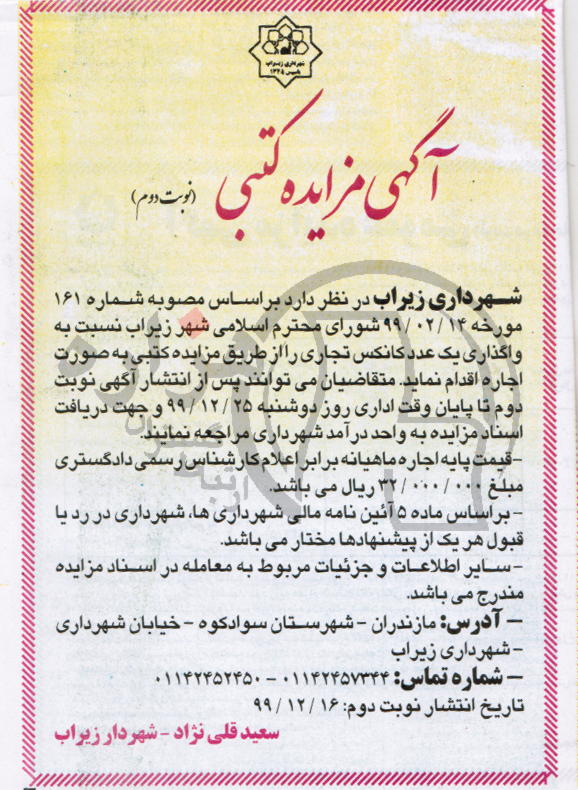 شهرداری زیراب
تاسیس ۱۳۴۵
آگهی مزایده کتبی (نوبت دوم)
شهرداری زیراب در نظر دارد براساس مصوبه شماره ۱۶۱
مورخه ۹۹/۰۲/۱۴ شورای محترم اسلامی شهر زیراب نسبت به
واگذاری یک عدد کانکس تجاری را از طریق مزایده کتبی به صورت
اجاره اقدام نماید. متقاضیان می توانند پس از انتشار آگهی نوبت
دوم تا پایان وقت اداری روز دوشنبه ۹۹/۱۲/۲۵ و جهت دریافت
اسناد مزایده به واحد درآمد شهرداری مراجعه نمایند.
-قیمت پایه اجاره ماهیانه برابر اعلام کارشناس رسمی دادگستری
مبلغ ۳۲/۰۰۰/۰۰۰ ریال می باشد.
- براساس ماده ۵ آئین نامه مالی شهرداری ها، شهرداری در رد یا
قبول هر یک از پیشنهادها مختار می باشد.
-سایر اطلاعات و جزئیات مربوط به معامله در اسناد مزایده
مندرج می باشد.
- آدرس: مازندران - شهرستان سوادکوه - خیابان شهرداری
- شهرداری زیراب
- شماره تماس: ۰۱۱۴۲۴۵۷۳۴۴ - ۰۱۱۴۲۴۵۲۴۵۰
تاریخ انتشار نوبت دوم: ۹۹/۱۲/۱۶
سعید قلی نژاد - شهردار زیراب